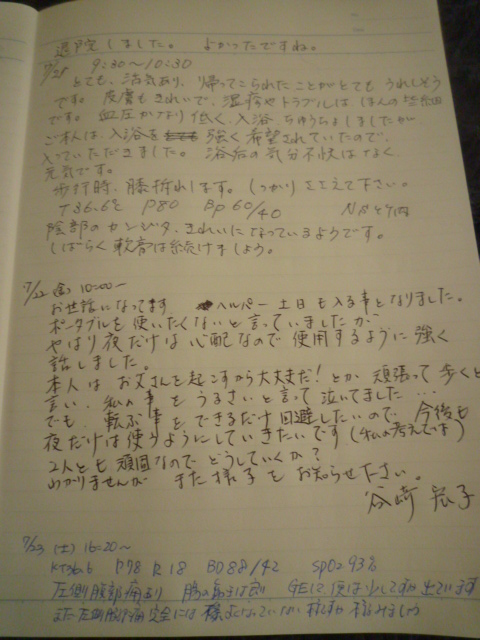 退院しました。 よかったですね。
9:30〜10:30
とても、活気あり、帰ってこられたことがとてもうれしそう
です。皮膚もきれいで、湿疹やトラブルはほんの
です。血圧かなり低く、入浴ちゅうちょしましたが
ご本人は、入浴を 強く希望されていたので、
入っていただきました。浴后の気分不快はなく、
元気です。
歩行時、膝折れします。しっかりささえて下さい。
T36.6℃ P80 Bp 60/40
陰部のカンジタ、きれいになっているようです。
しばらく軟膏は続けましょう。
7/22 (金) 10:00〜
お世話になってます ヘルパー土日も入る事となりました。
ポータブルを使いたくないと言っていましたが、
やはり夜だけは心配なので使用するように強く
話しました。
本人はお父さんを起こすから大丈夫だ!とか、頑張って歩くと
言い、私の事をうるさいと言って泣いてました…
でも、転ぶ事をできるだけ回避したいので、今後も
夜だけは使うようにしていきたいです(私の考えでは)
2人とも頑固なのでどうしていくか?
わかりませんが また様子をお知らせ下さい。
谷崎
7/23 (土) 16:20〜
KT36.6 P98 R18 BD88/42 SpO2 93%
左側腹部痛あり GEにて便は少しずつ出ています
また左側腹痛完全には